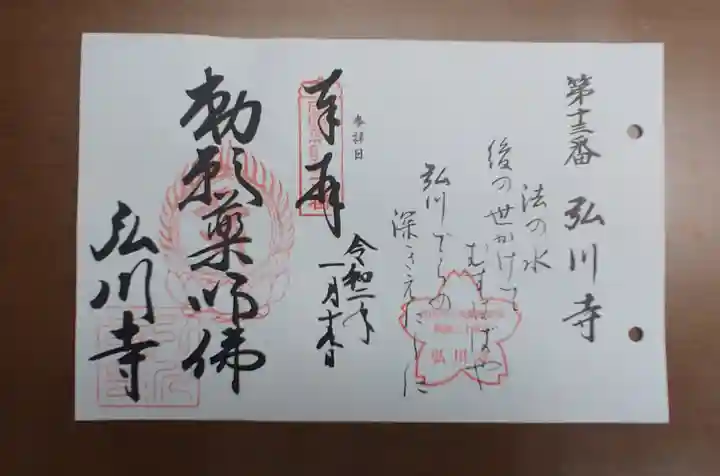 第十三番 弘川寺
法の水
後の世かけて
むすばばや
弘川でらの
参拝日
奉拝
令和二年
一月十六日
勅願薬師佛
弘川寺
弘川